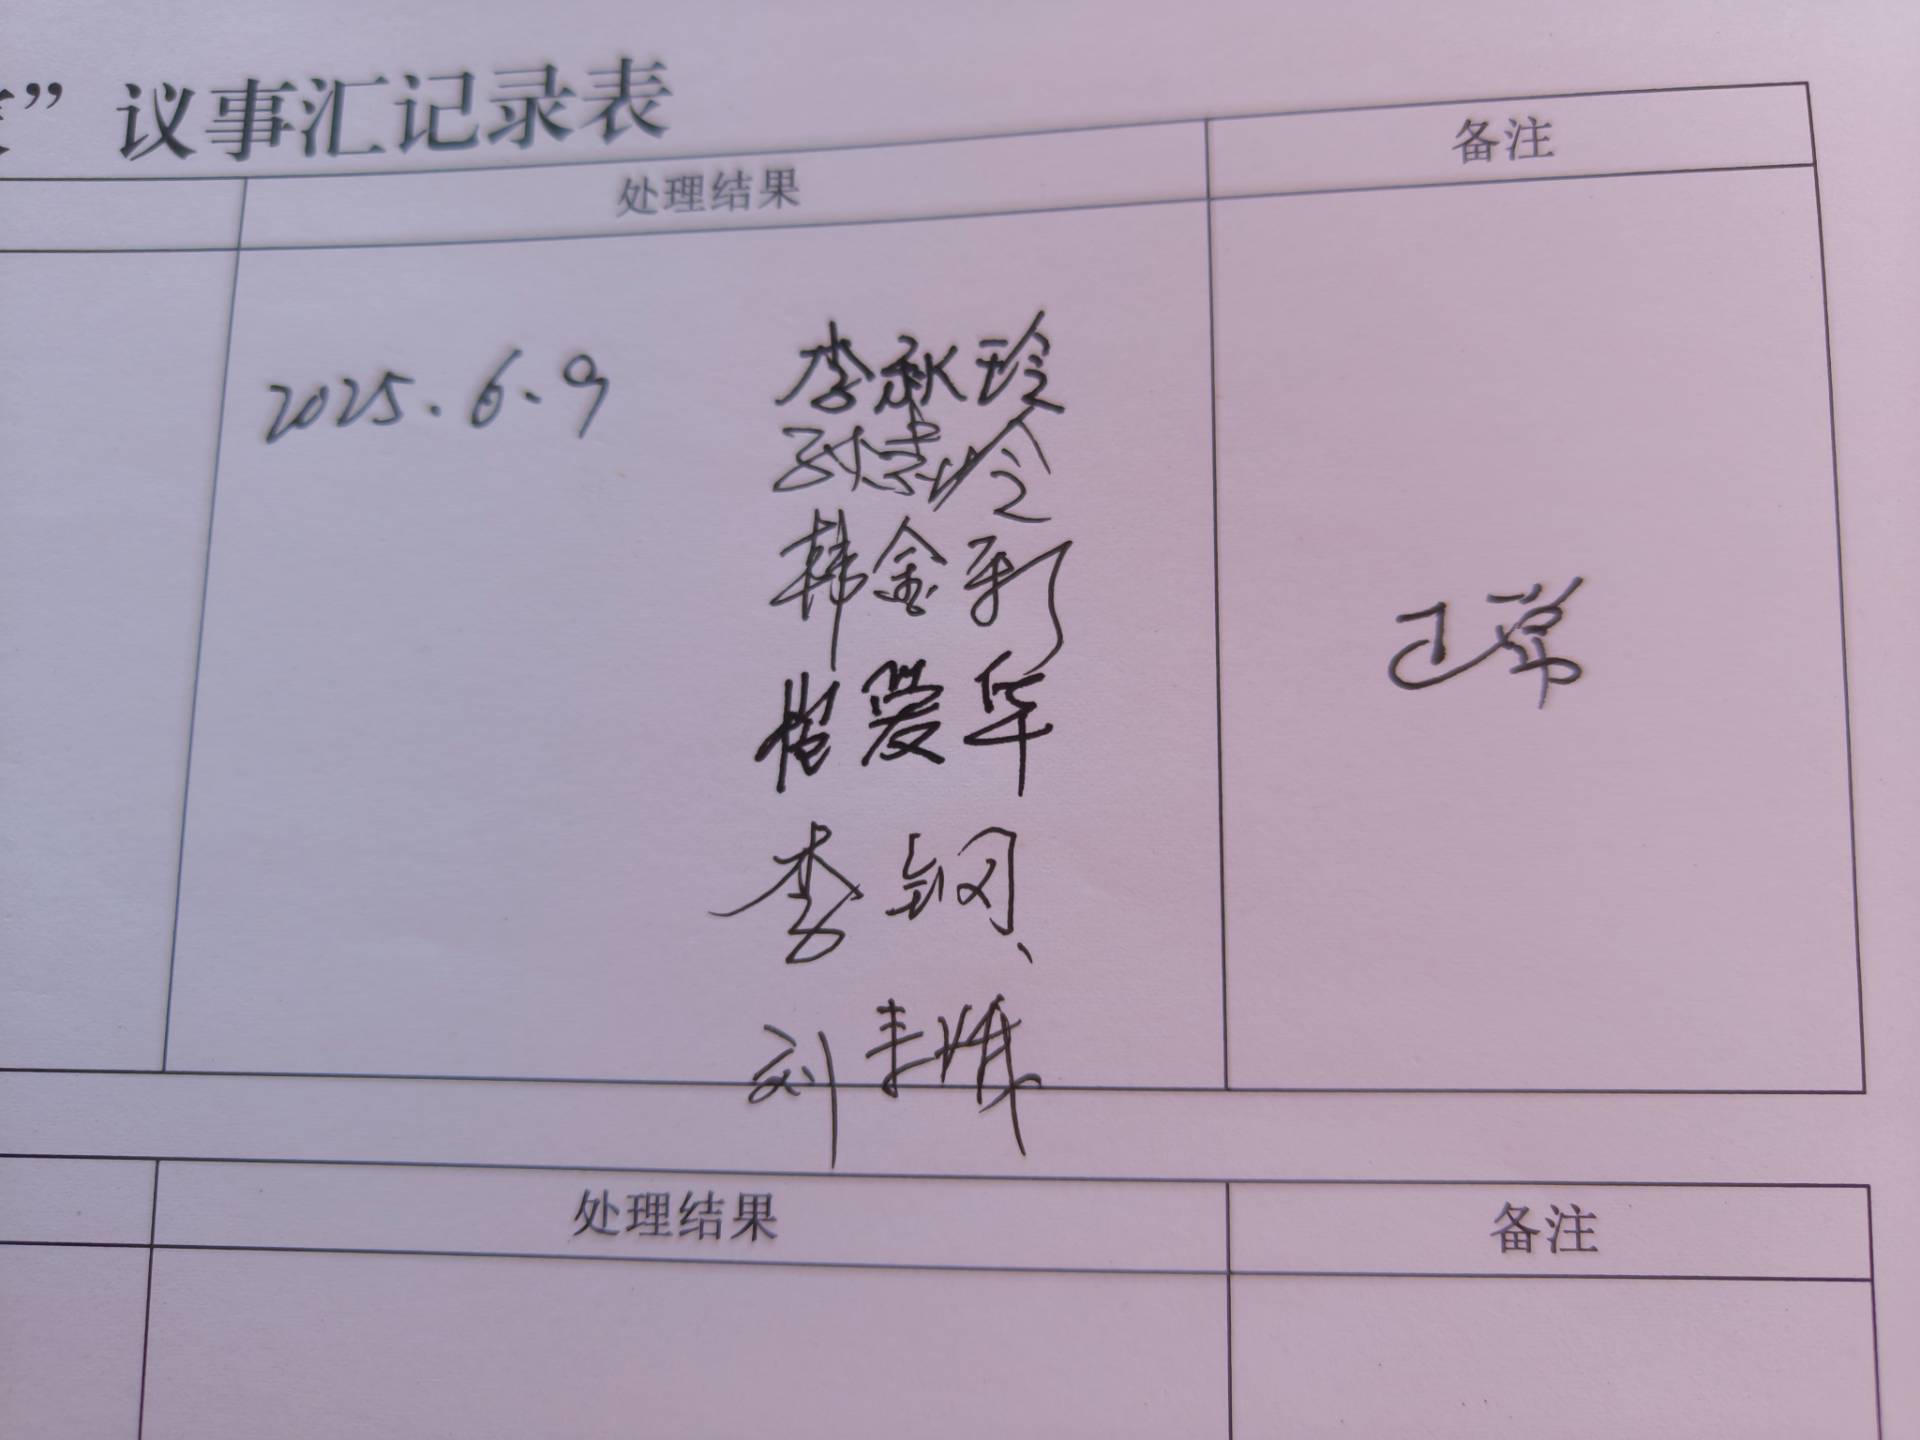 ”议事汇记录表
处理结果 备注
2025.6.9 李秋玲
孙素玲
韩金彩
爱华
李钢
刘丰
正常
处理结果 备注